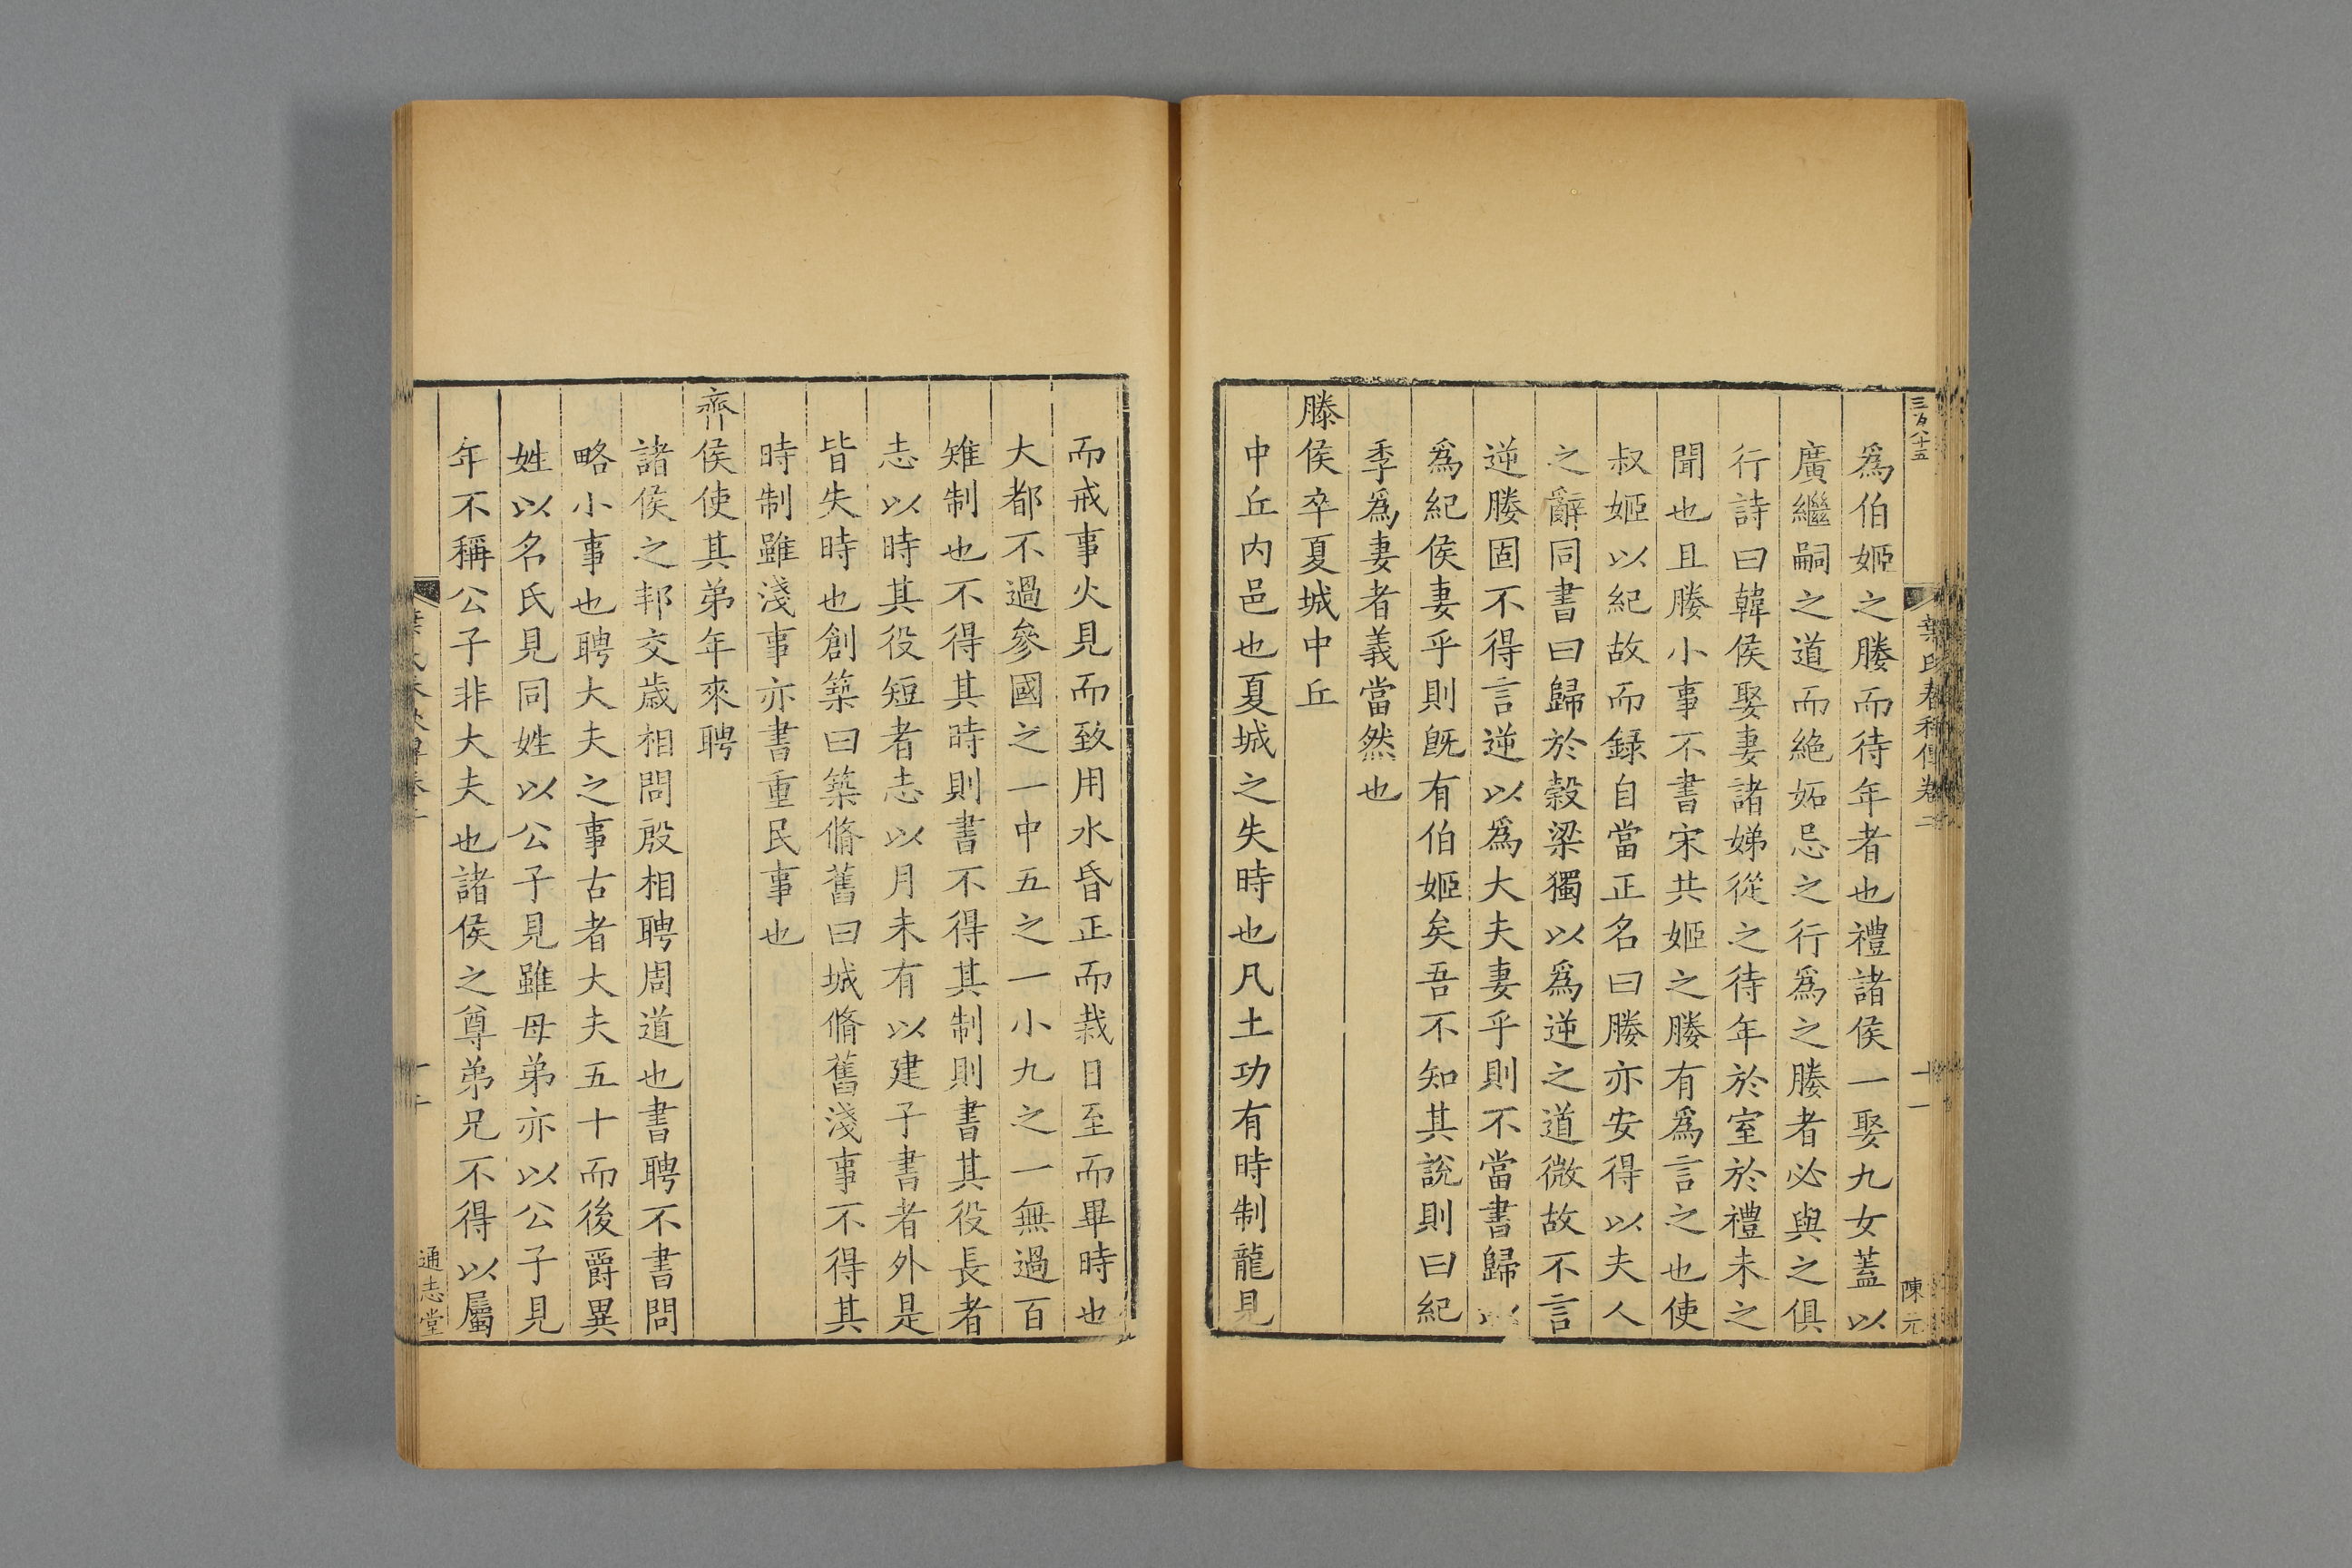 三百八十五
葉氏春秋傳卷二
十一
陳元
爲伯姬之媵而待年者也禮諸侯一娶九女蓋以
廣繼嗣之道而絶妬忌之行爲之媵者必與之俱
行詩曰韓侯娶妻諸娣從之待年於室於禮未之
聞也且媵小事不書宋共姬之媵有爲言之也使
叔姬以紀故而録自當正名曰媵亦安得以夫人
之辭同書曰歸於榖梁獨以爲逆之道微故不言
逆媵固不得言逆以爲大夫妻乎則不當書歸以
爲紀侯妻乎則旣有伯姬矣吾不知其說則曰紀
季爲妻者義當然也
滕侯卒夏城中丘
中丘内邑也夏城之失時也凡土功有時制龍見
而戒事火見而致用水昏正而栽日至而畢時也
大都不過參國之一中五之一小九之一無過百
雉制也不得其時則書不得其制則書其役長者
志以時其役短者志以月未有以建子書者外是
皆失時也創築曰築脩舊曰城脩舊淺事不得其
時制雖淺事亦書重民事也
齊侯使其弟年來聘
諸侯之邦交歲相問殷相聘周道也書聘不書問
略小事也聘大夫之事古者大夫五十而後爵異
姓以名氏見同姓以公子見雖母弟亦以公子見
年不稱公子非大夫也諸侯之尊弟兄不得以屬
通志堂